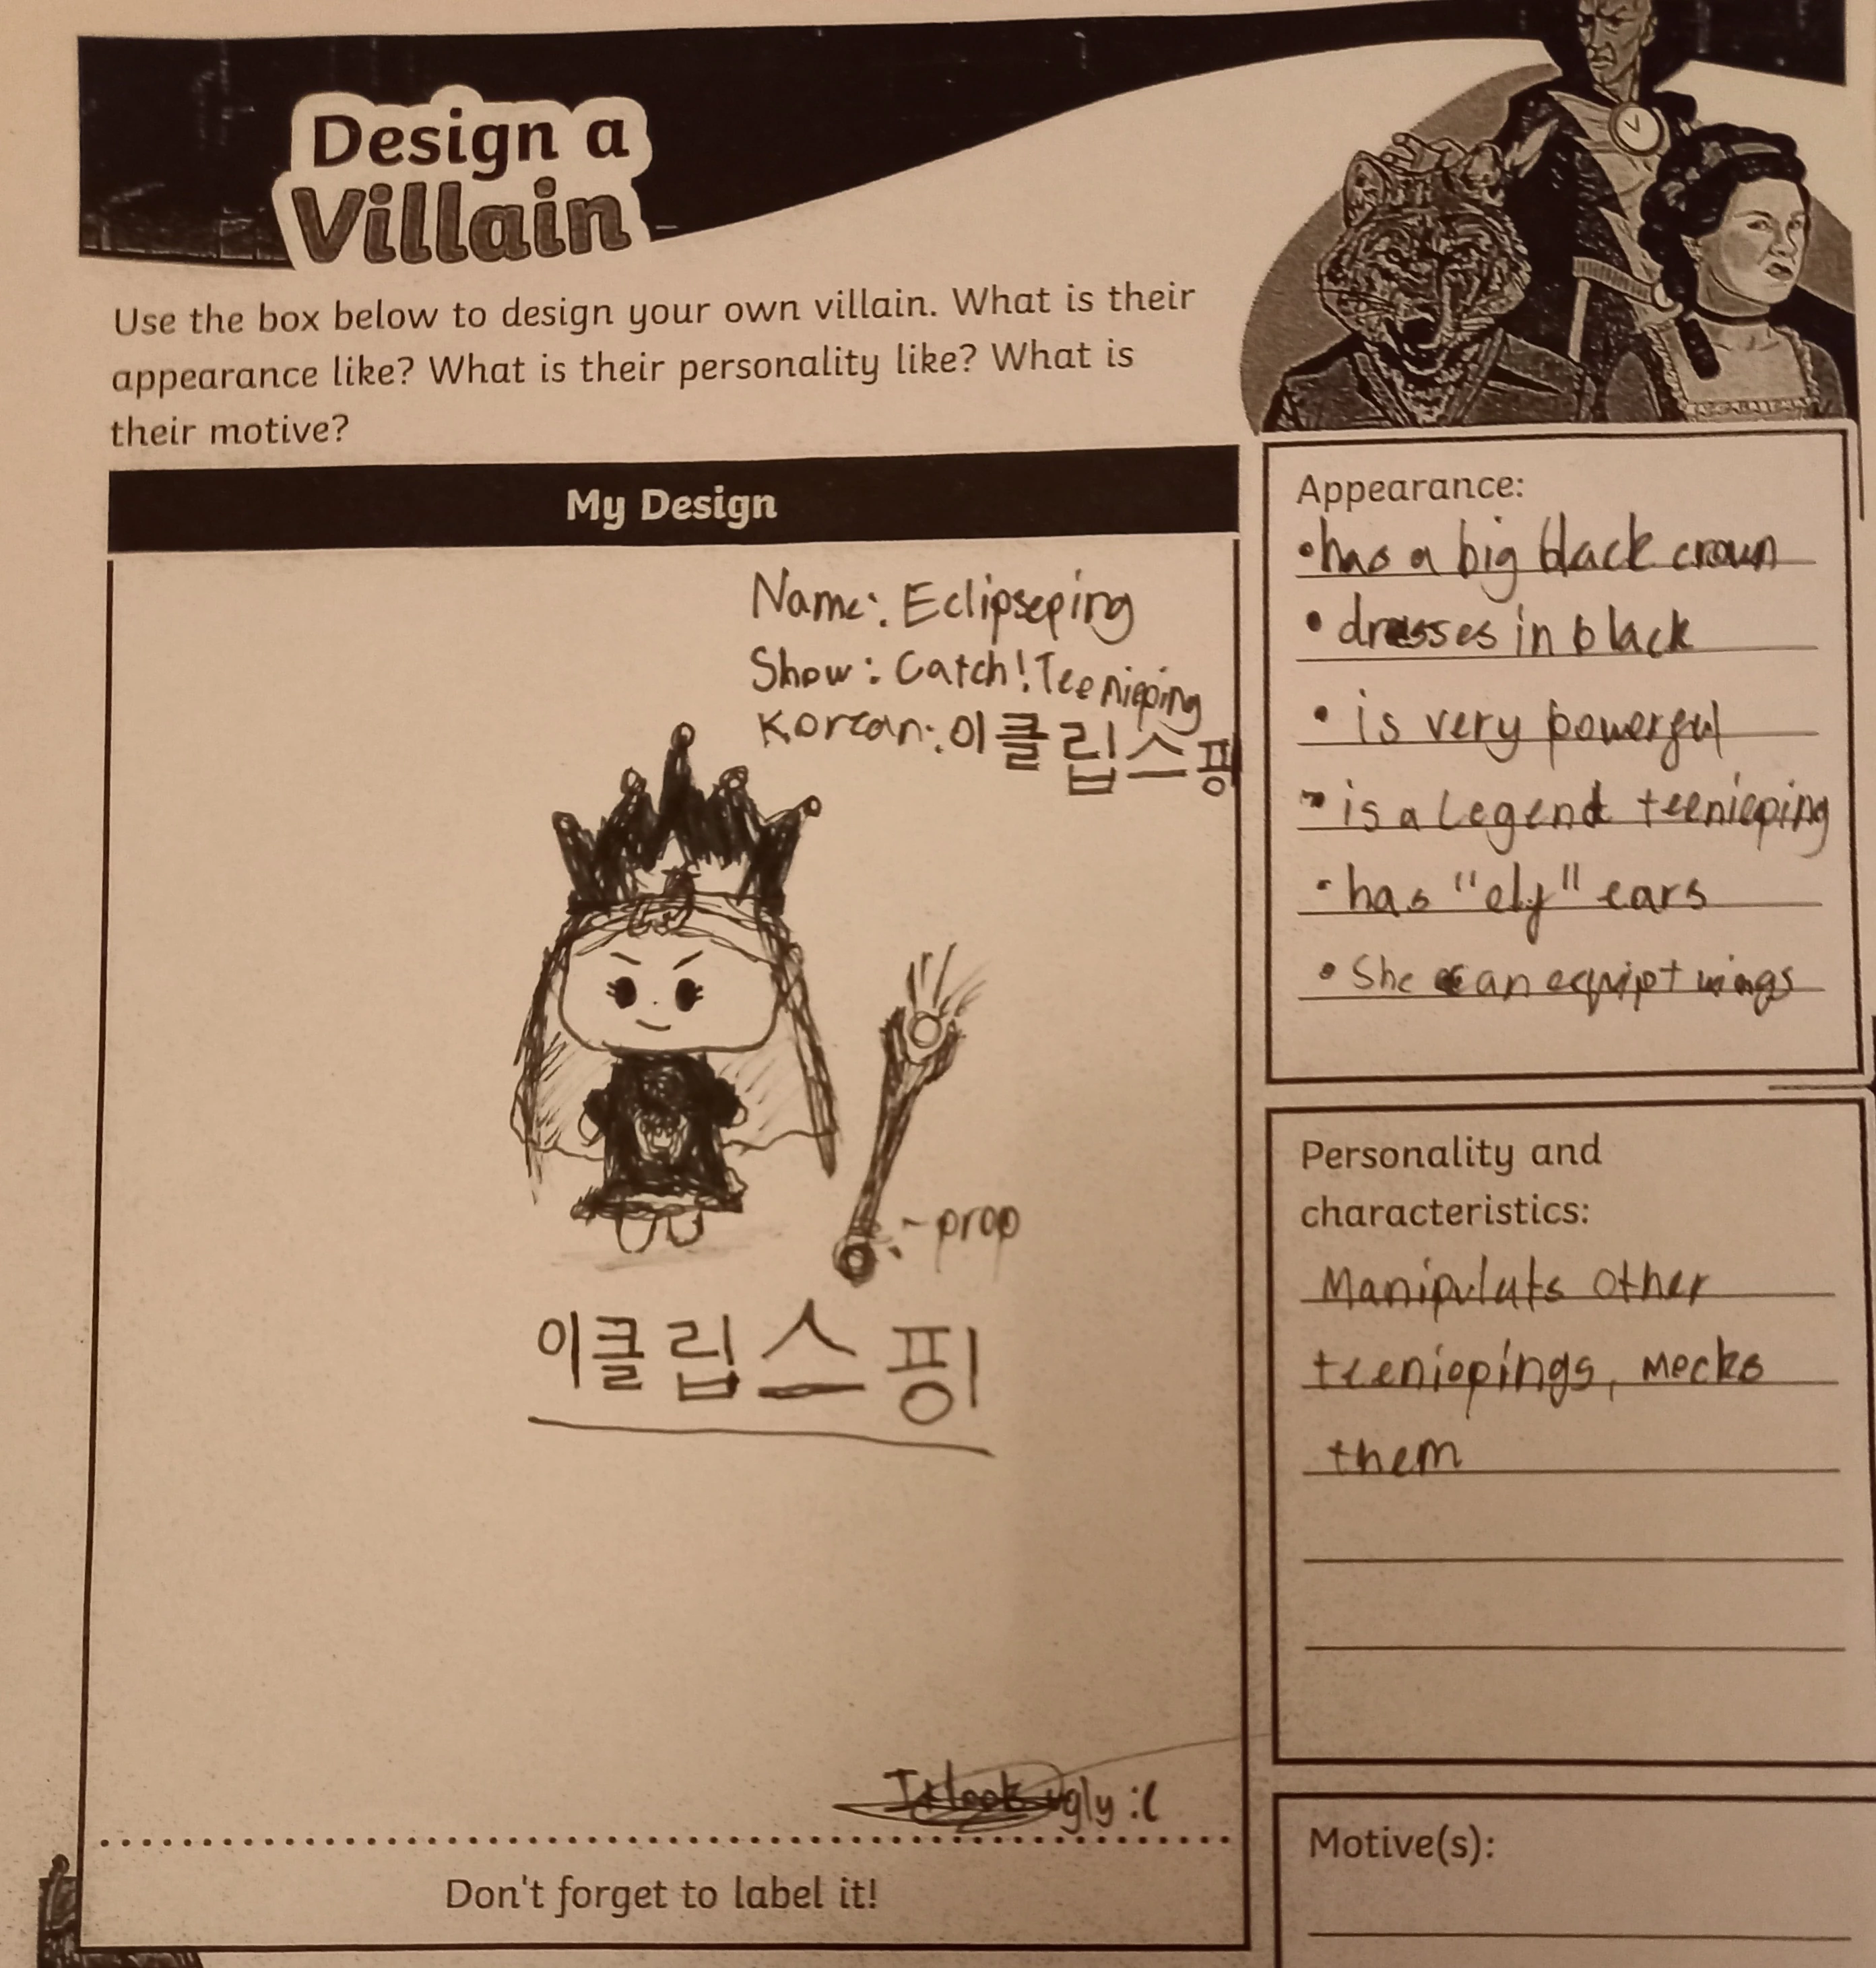 Design a
Villain
Use the box below to design your own villain. What is their
appearance like? What is their personality like? What is
their motive?
My Design
Name: Eclipseping
Show: Catch! Teenieping
Korean: 이클립스핑
-prop
이클립스핑
ugly :(
Don't forget to label it!
Appearance:
• has a big black crown
• dresses in black
• is very powerful
• is a Legend teenieping
• has "elf" ears
• She can equipt wings
Personality and
characteristics:
Manipulats other
teeniepings, mocks
them
Motive(s):